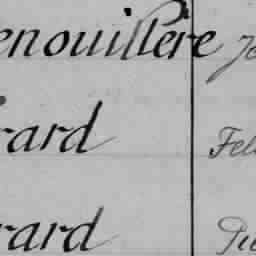 enouillère Jo
rard Fel
rard Pie